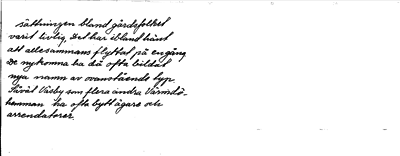 sättningen bland gårdsfolket
varit livlig. Det har ibland hänt
att allesammans flyttat på en gång
De nykomna ha då ofta bildat
nya namn av ovanstående typ.
Såväl Väsby som flera andra Värmdö-
hemman ha ofta bytt ägare och
arrendatorer.